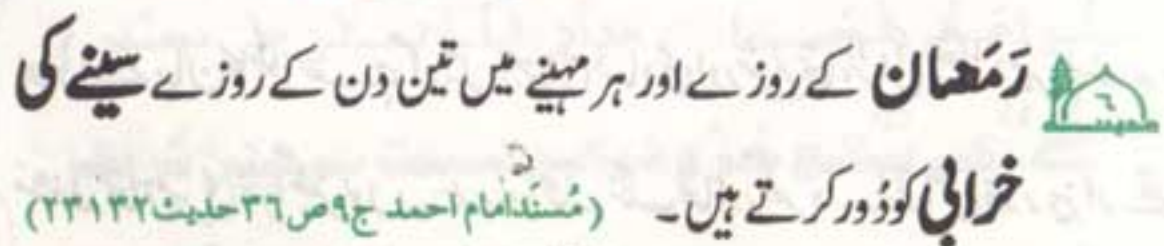 حدیث ٦ رَمَضان کے روزے اور ہر مہینے میں تین دن کے روزے سینے کی
خرابی کو دُور کرتے ہیں۔ (مُسنَد امام احمد ج۹ ص۳٦ حدیث ۲۳۱۳۲)